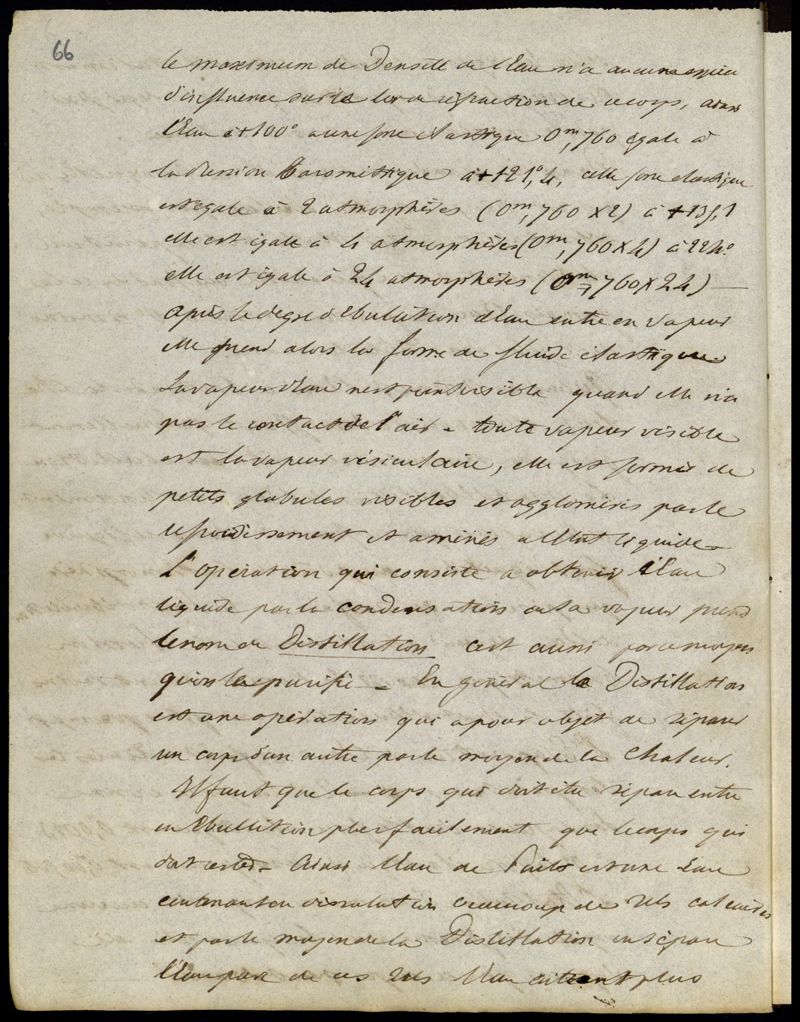 66
le maximum de Densité de l'Eau n'a aucune espèce
d'influence sur la loi de réfraction de ce corps, ainsi
l'Eau à +100° a une force élastique 0m,760 égale à
la pression Barométrique à +121°,4, cette force élastique
est égale à 2 atmosphères (0m,760 x 2) à +135,1
elle est égale à 4 atmosphères (0m,760 x 4) à 224°
elle est égale à 24 atmosphères (0m,760 x 24) —
après le degré d'Ebulution l'Eau entre en vapeur
elle prend alors la forme de fluide élastique
La vapeur d'eau n'est point visible quand elle n'a
pas le contact de l'air - toute vapeur visible
est la vapeur vésiculaire, elle est formée de
petits globules visibles et agglomérés par le
refroidissement et aminés a l'Etat liquide -
L'opération qui consiste a obtenir l'Eau
liquide par la condensation de sa vapeur prend
le nom de Distillation c'est aussi par ce moyen
qu'on la purifie - En général la Distillation
est une opération qui a pour objet de séparer
un corps d'un autre par le moyen de la Chaleur.
Il faut que le corps qui doit être séparé entre
en Ebullition plus facilement que le corps qui
doit rester - Ainsi l'Eau de Puits est une Eau
contenant en dissolution beaucoup de sels calcaires
et par le moyen de la Distillation on sépare
l'Eau pure de ces sels l'Eau plus